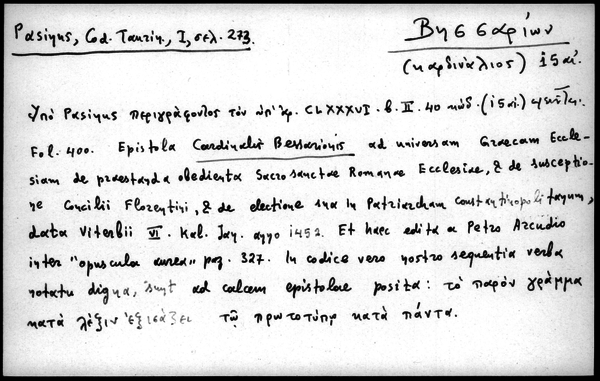 Pasinus, Cod. Taurin., I, σελ. 273.
Βησσαρίων
(καρδινάλιος) 15 αἰ.
Ὑπὸ Pasinus περιγράφοντος τὸν ὑπ' ἀρ. CLXXXVI. b. II. 40 κώδ. (15 αἰ.)
Fol. 400. Epistola Cardinalis Bessarionis ad universam Graecam Eccle-
siam de praestanda obedienta Sacrosanctae Romanae Ecclesiae, & de susceptio-
ne Concilii Florentini, & de electione sua in Patriarcham Constantinopolitanum,
data Viterbii VI. Kal. Jan. anno 1452. Et haec edita a Petro Arcudio
inter "opuscula aurea" pag. 327. In codice vero nostro sequentia verba
notatu digna, sunt ad calcem epistolae posita: τὸ παρὸν γράμμα
κατὰ λέξιν ἐξισάζει τῷ πρωτοτύπῳ κατὰ πάντα.